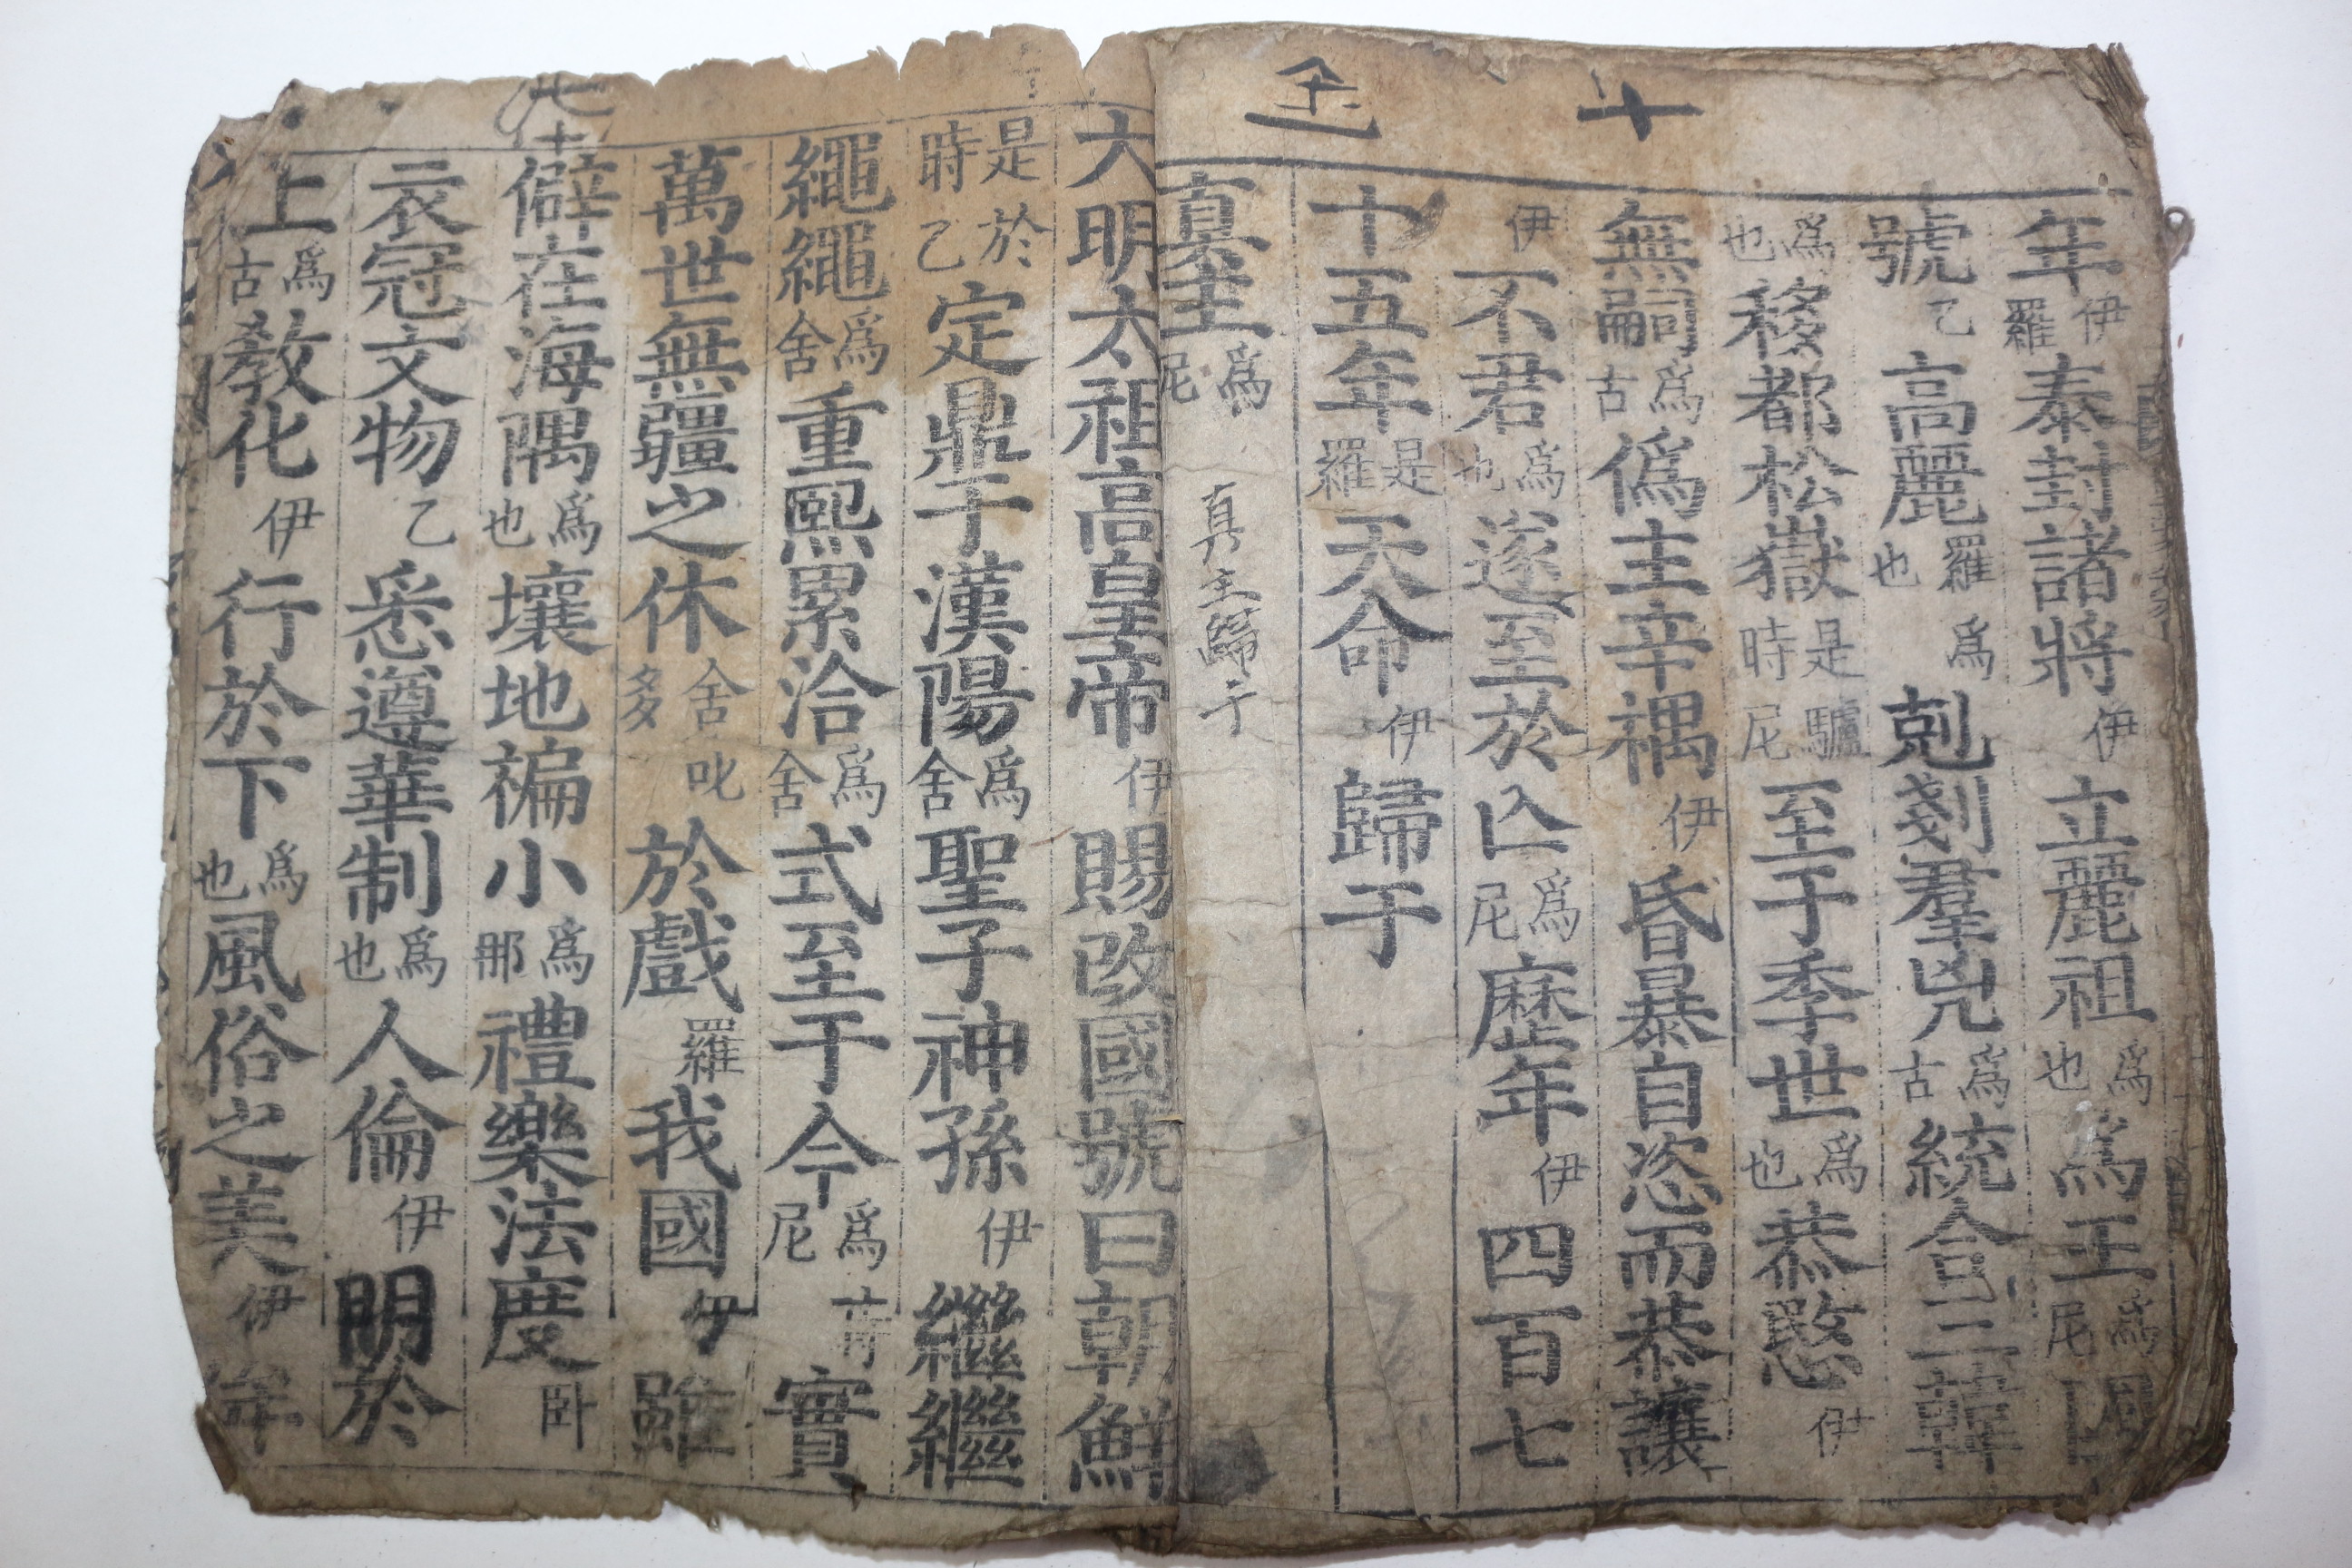 十
年伊羅泰封諸將伊立麗祖爲也爲王爲尼國
號乙高麗羅爲也剋剗羣兇爲古統合三韓
爲也移都松嶽是驢時尼至于季世爲也恭愍伊
無嗣爲古僞主辛禑伊昏暴自恣而恭讓
伊不君爲也遂至於亾爲尼歷年伊四百七
十五年是羅天命伊歸于
眞主爲尼
真主歸于
大明太祖高皇帝伊賜改國號曰朝鮮
是時於乙定鼎于漢陽爲舍聖子神孫伊繼繼
繩繩爲舍重熙累洽爲舍式至于今爲尼實
萬世無疆之休舍叱多於戲羅我國伊雖
僻在海隅爲也壤地褊小爲那禮樂法度臥
衣冠文物乙悉遵華制爲也人倫伊明於
上爲古敎化伊行於下爲也風俗之美伊侔